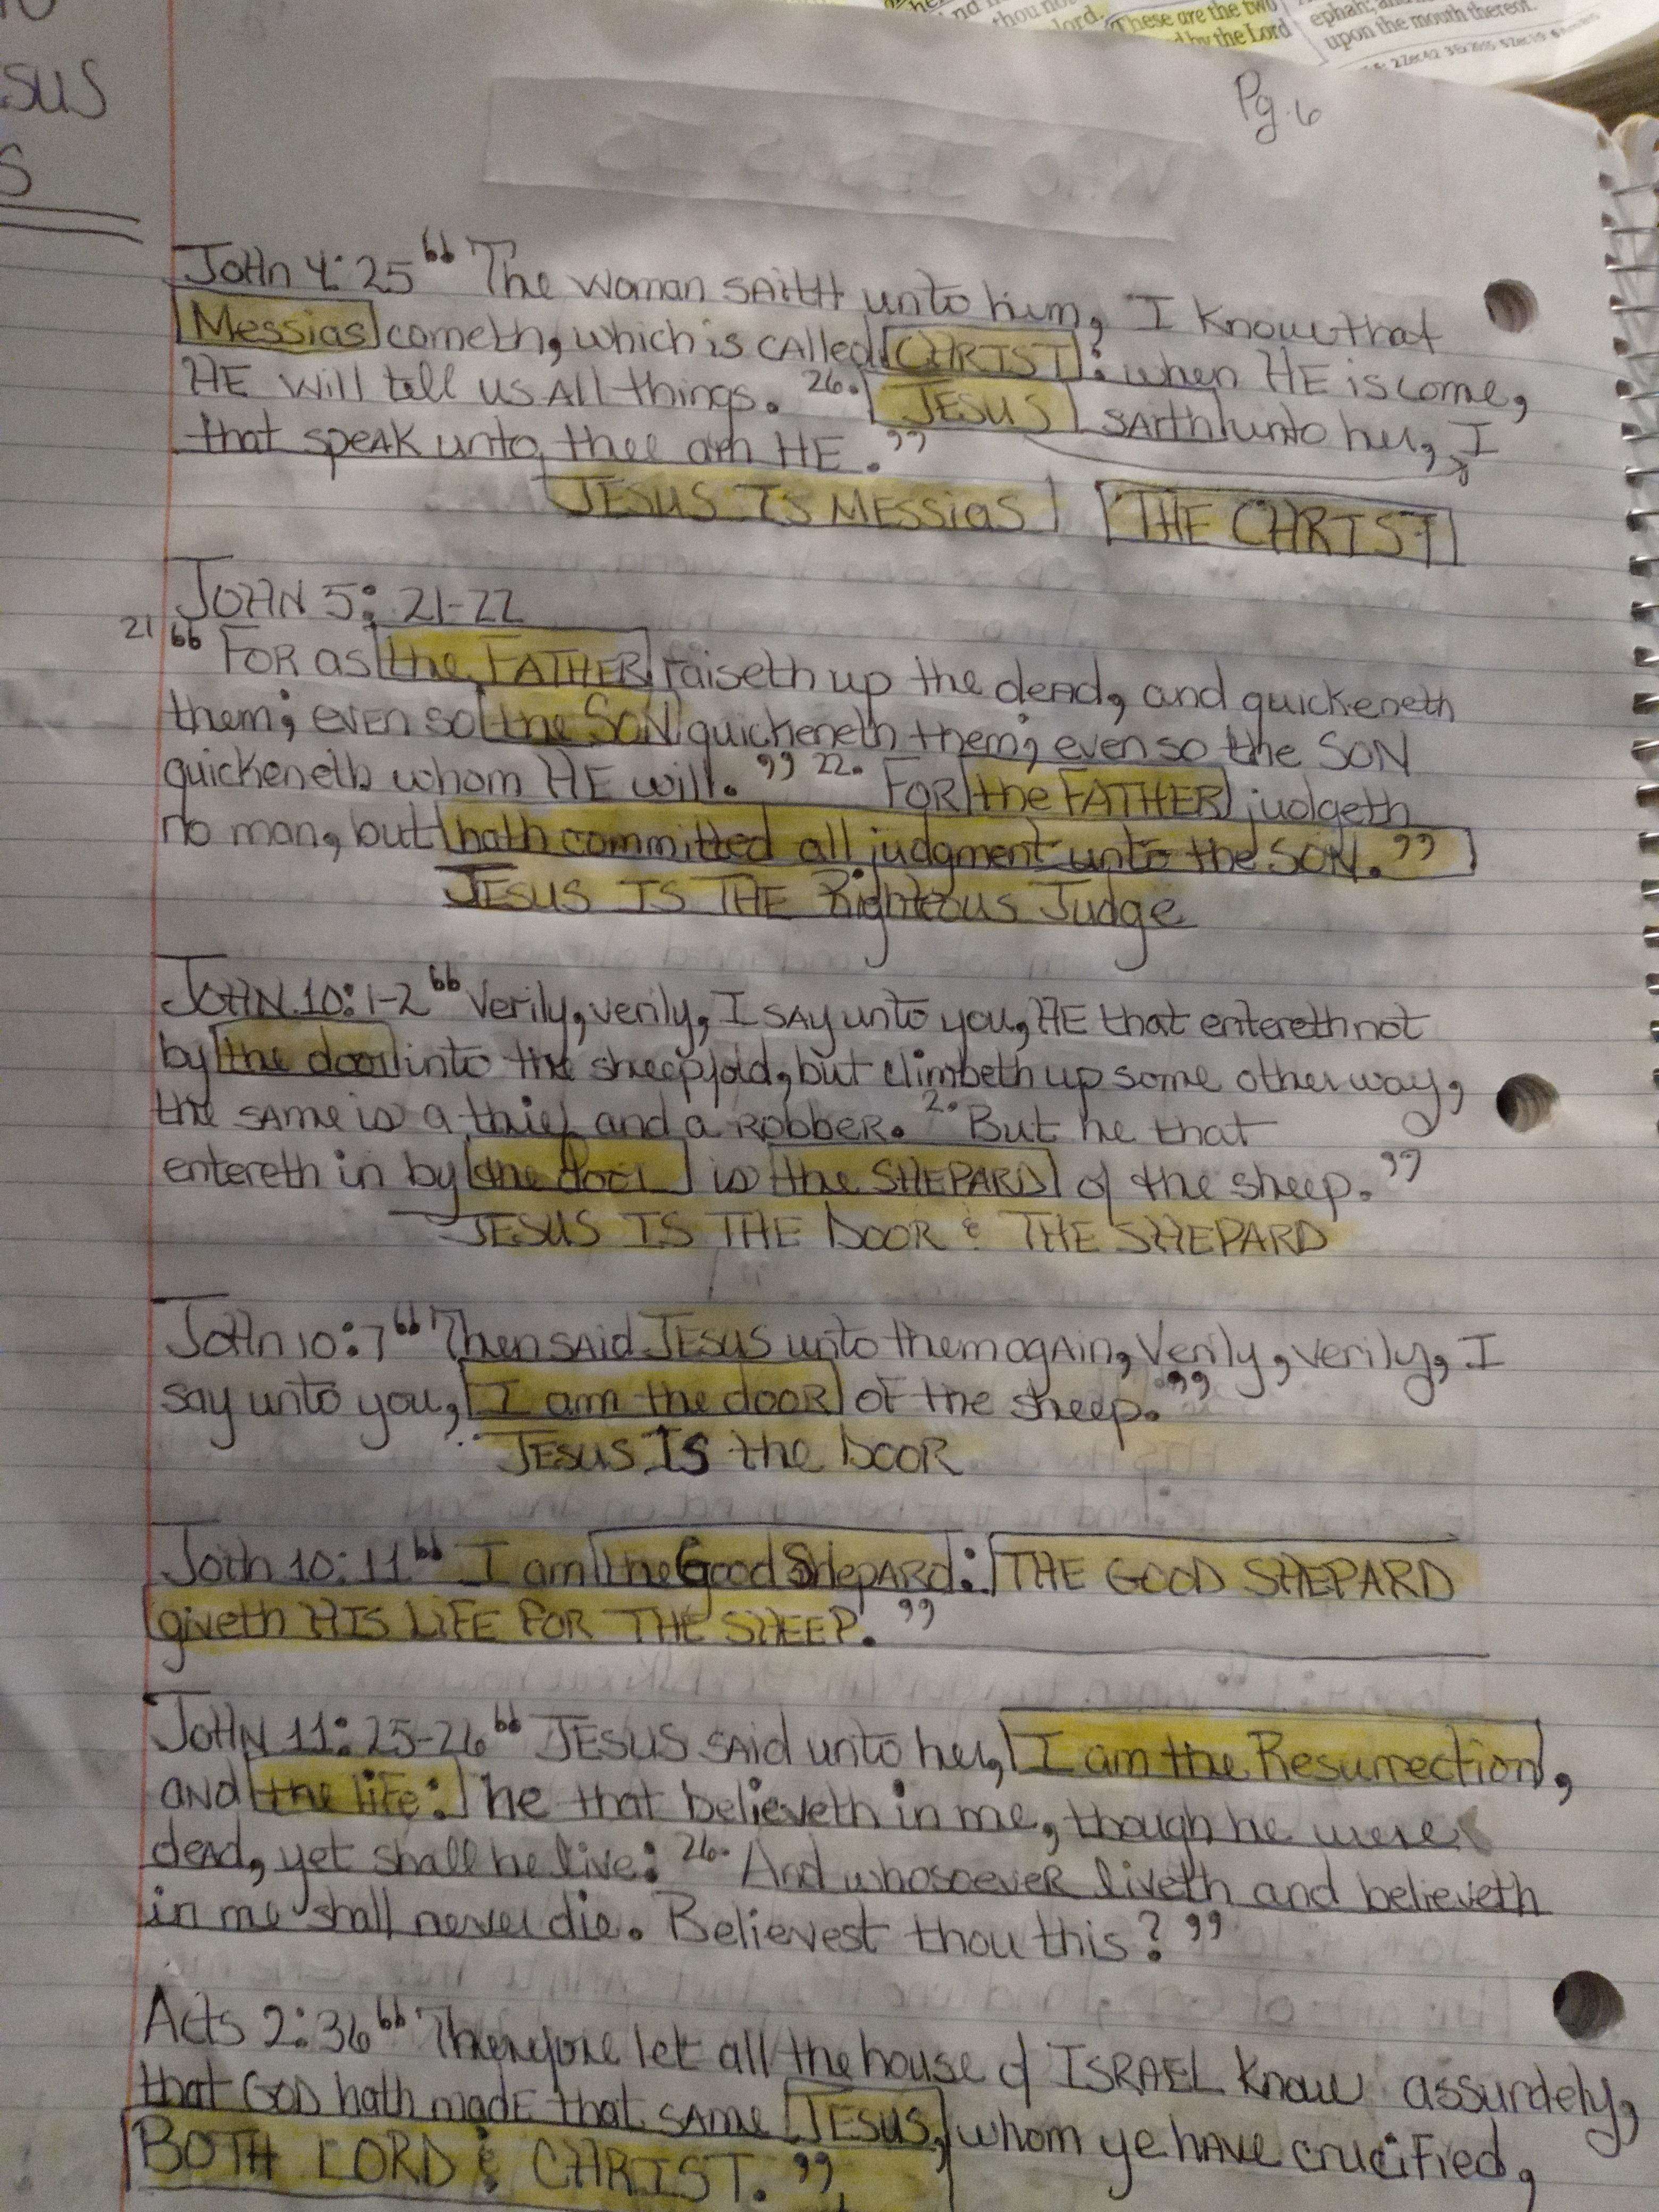 SUS
S
These are the two
ephah; and
lord.
d by the Lord
upon the mouth thereof.
Pg. 6
WHO JESUS IS
John 4:25 “ The woman saith unto him, I know that
Messias cometh, which is called CHRIST: when HE is come,
HE will tell us All things. 26. JESUS saith unto her, I
that speak unto thee am HE. ”
JESUS IS MESSiaS THE CHRIST
JOHN 5: 21-22
21 “ FOR as the FATHER raiseth up the dead, and quickeneth
them; even so the SON quickeneth them; even so the SON
quickeneth whom HE will. ” 22. FOR the FATHER judgeth
no man, but hath committed all judgment unto the SON. ”
JESUS IS THE Righteous Judge
JOHN 10:1-2 “ Verily, verily, I say unto you, HE that entereth not
by the door into the sheepfold, but climbeth up some other way,
the same is a thief and a robber. 2. But he that
entereth in by the door is the SHEPARD of the sheep. ”
JESUS IS THE DOOR & THE SHEPARD
John 10:7 “ Then said JESUS unto them again, Verily, verily, I
say unto you, I am the door of the sheep. ”
JESUS IS the DOOR
John 10:11 “ I am the Good Shepard: THE GOOD SHEPARD
giveth HIS LiFE FOR THE SHEEP. ”
JOHN 11:25-26 “ JESUS said unto her, I am the Resurrection,
and the life: he that believeth in me, though he were
dead, yet shall he live: 26. And whosoever liveth and believeth
in me shall never die. Believest thou this? ”
Acts 2:36 “ Therefore let all the house of ISRAEL know assurdely,
that GOD hath made that same JESUS, whom ye have crucified,
BOTH LORD & CHRIST. ”